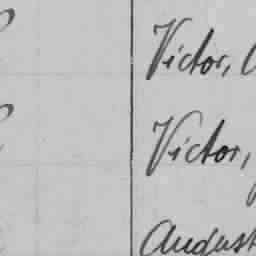 Victor,
Victor,
August